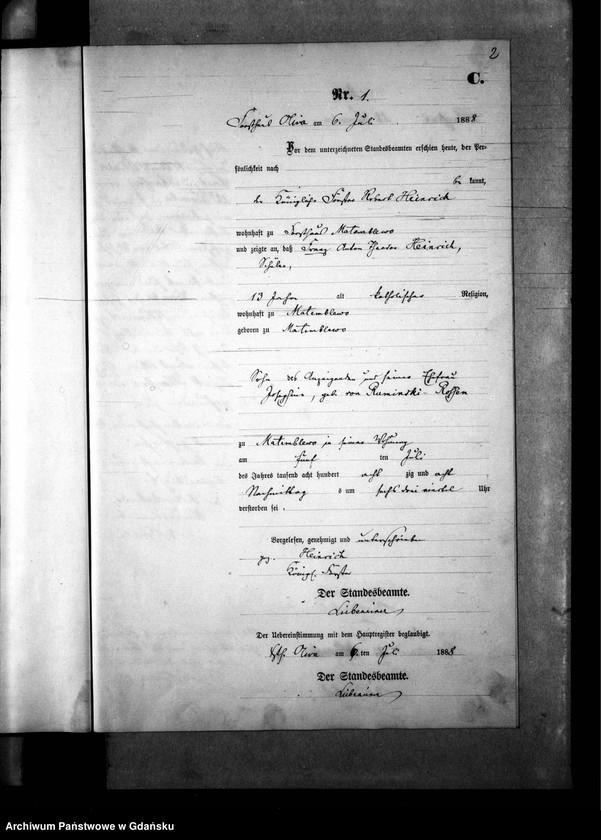 2
C.
Nr. 1.
Forsthaus Oliva am 6. Juli 1888
Vor dem unterzeichneten Standesbeamten erschien heute, der Per-
sönlichkeit nach
be kannt,
der Königliche Förster Robert Heinrich
wohnhaft zu Forsthaus Matemblewo
und zeigte an, daß Franz Anton Theodor Heinrich,
Schüler,
13 Jahre alt katholischer Religion,
wohnhaft zu Matemblewo
geboren zu Matemblewo
Sohn des Anzeigenden und seiner Ehefrau
Josephine, geb. von Ruminski-
zu Matemblewo in seiner Wohnung
am fünf ten Juli
des Jahres tausend acht hundert acht zig und acht
Nachmittag s um sechs drei viertel Uhr
verstorben sei.
Vorgelesen, genehmigt und unterschrieben
gez. Heinrich
Königl. Förster
Der Standesbeamte.
Der Uebereinstimmung mit dem Hauptregister beglaubigt.
Oliva am 6. ten Juli 1888
Der Standesbeamte.
Archiwum Państwowe w Gdańsku